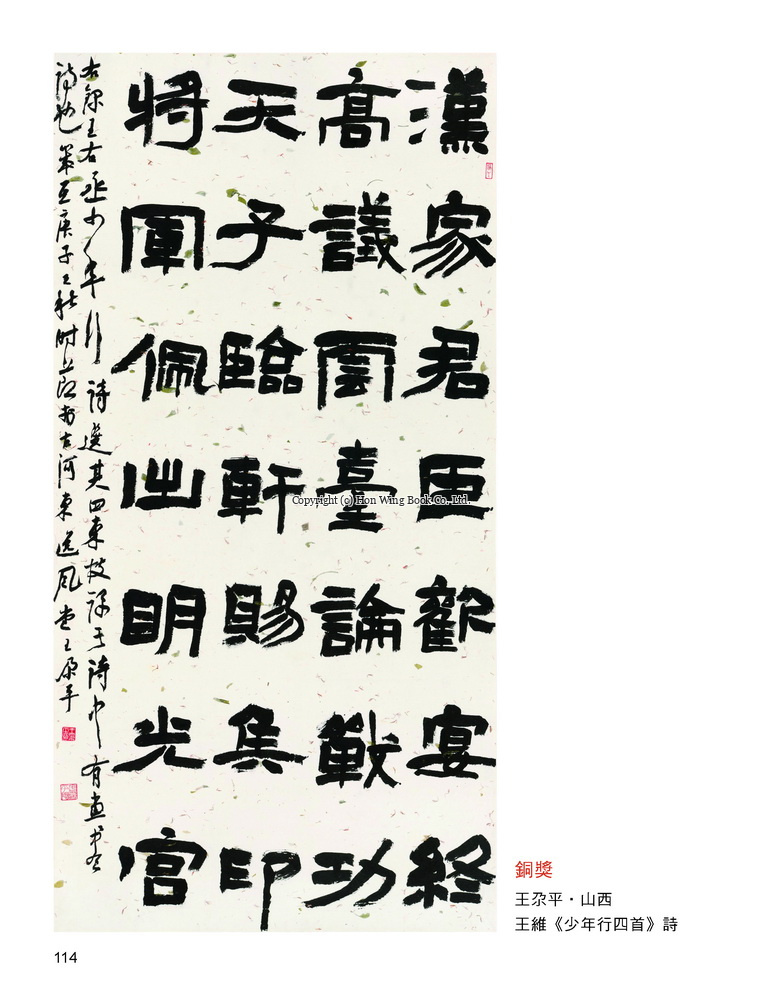 漢家君臣歡宴終
高議雲臺論戰功
天子臨軒賜侯印
將軍佩出明光宮
右錄王右丞少年行詩選其四東坡詩中有畫
詩也歲在庚子之秋時於古河東堂王尕平
Copyright (c) Hon Wing Book Co, Ltd.
銅獎
王尕平・山西
王維《少年行四首》詩
114